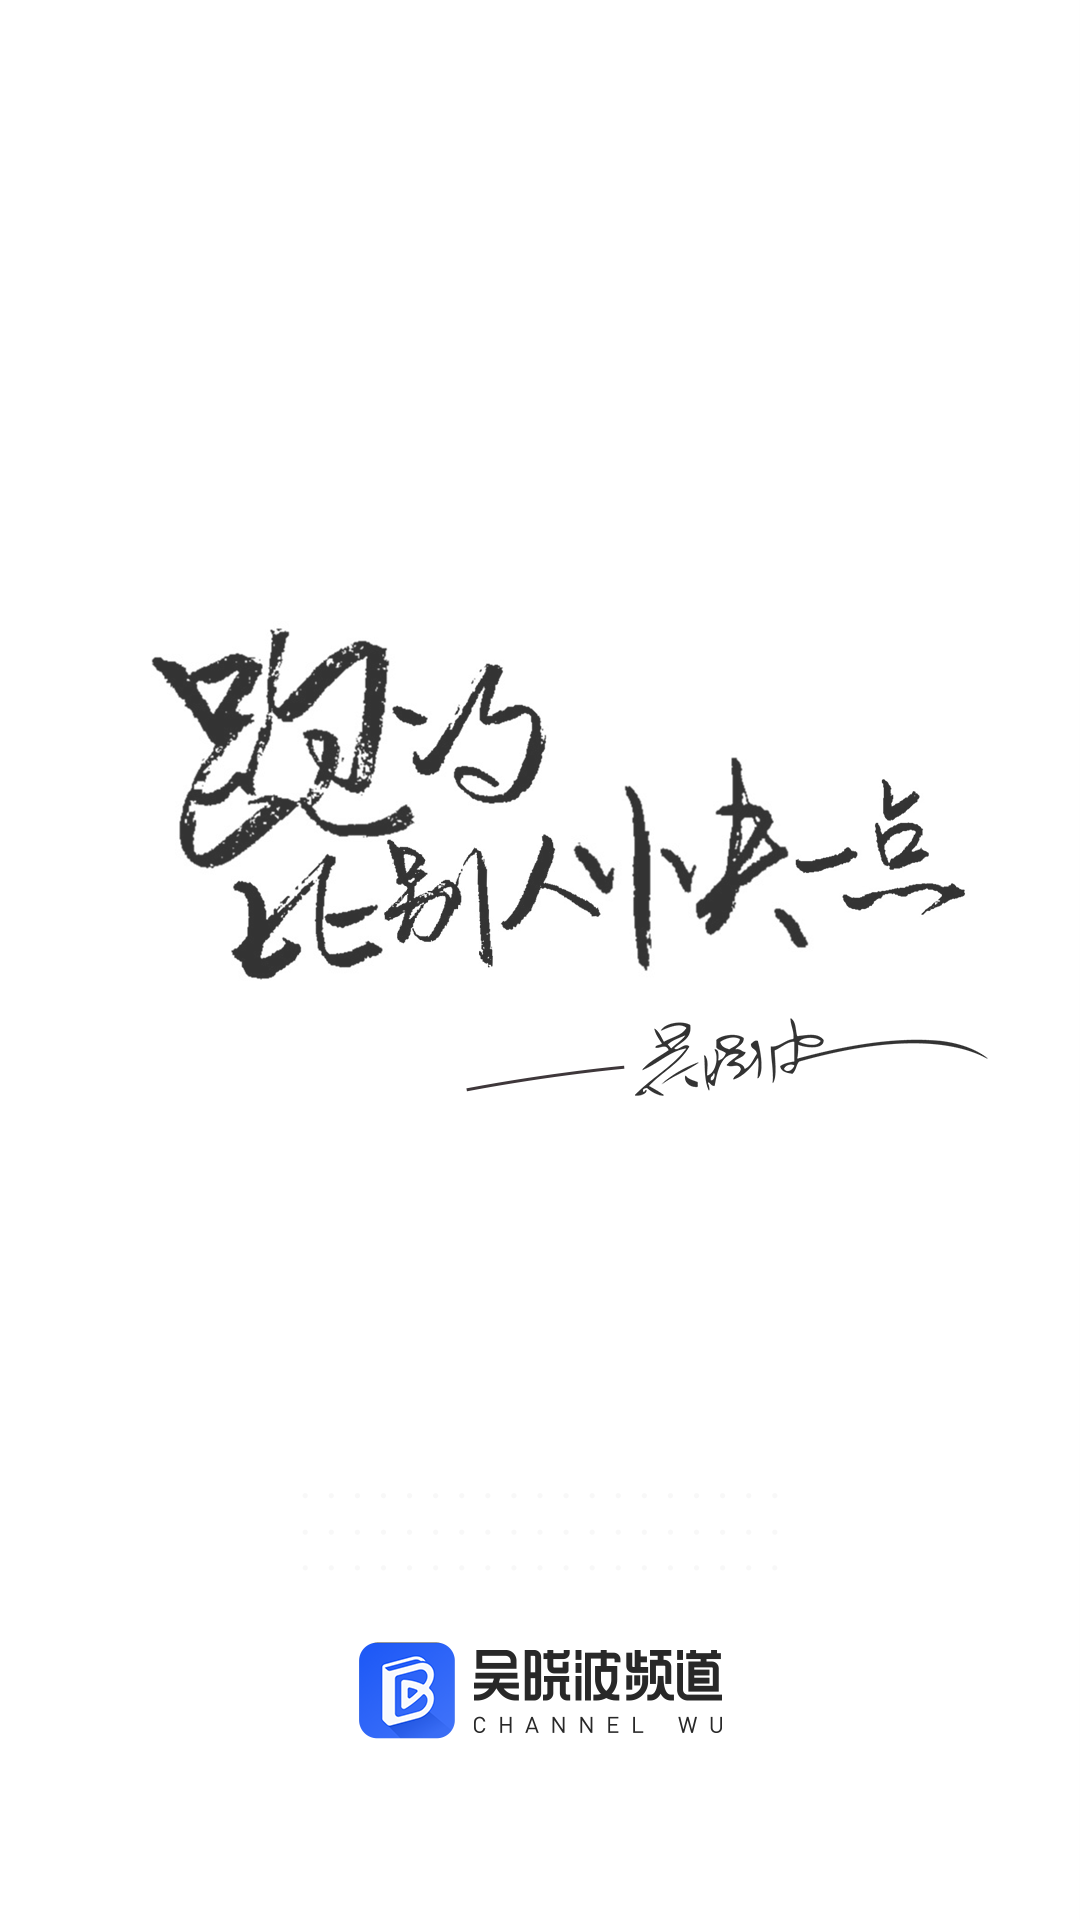 跑的
比别人快一点
——吴晓波
吴晓波频道
CHANNEL WU